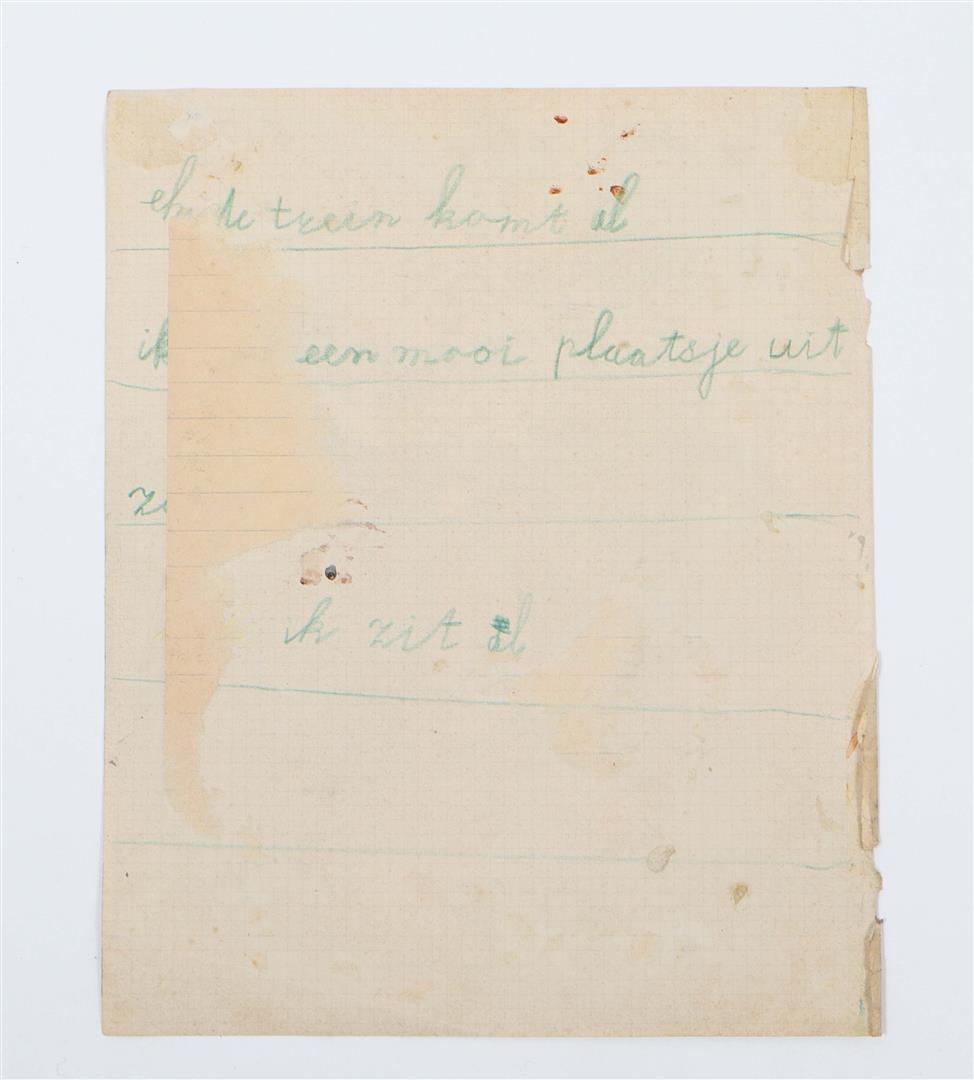 eh de trein komt al
ik een mooi plaatsje uit
ik zit al